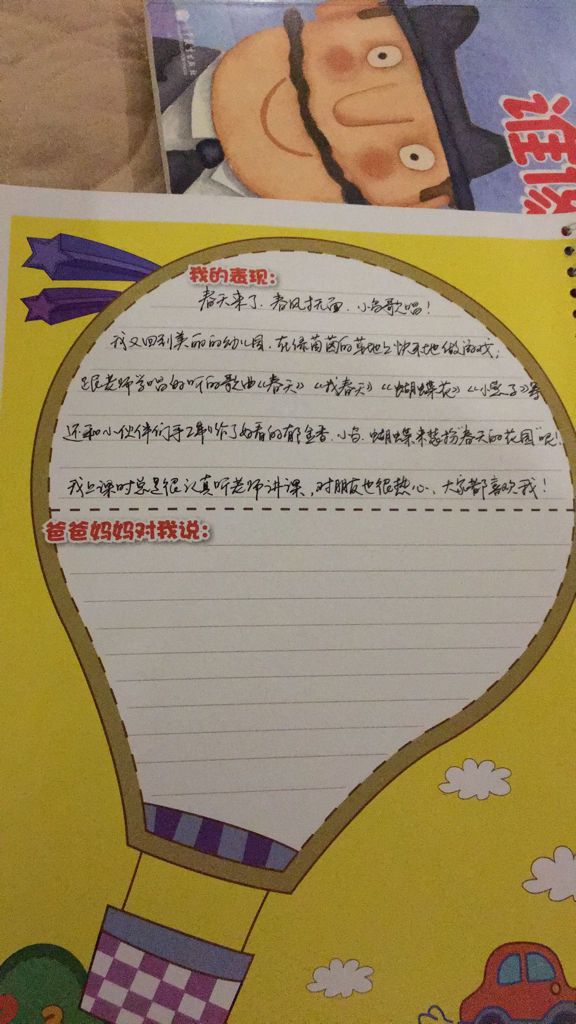 谁
我的表现：
春天来了，春风拂面，小鸟歌唱！
我又回到美丽的幼儿园，在绿茵茵的草地上快乐地做游戏，
跟老师学唱好听的歌曲《春天》《找春天》《蝴蝶花》《小燕子》等
还和小伙伴们手工制作了好看的郁金香、小鸟、蝴蝶来装扮“春天的花园”呢！
我上课时总是很认真听老师讲课，对朋友也很热心，大家都喜欢我！
爸爸妈妈对我说：